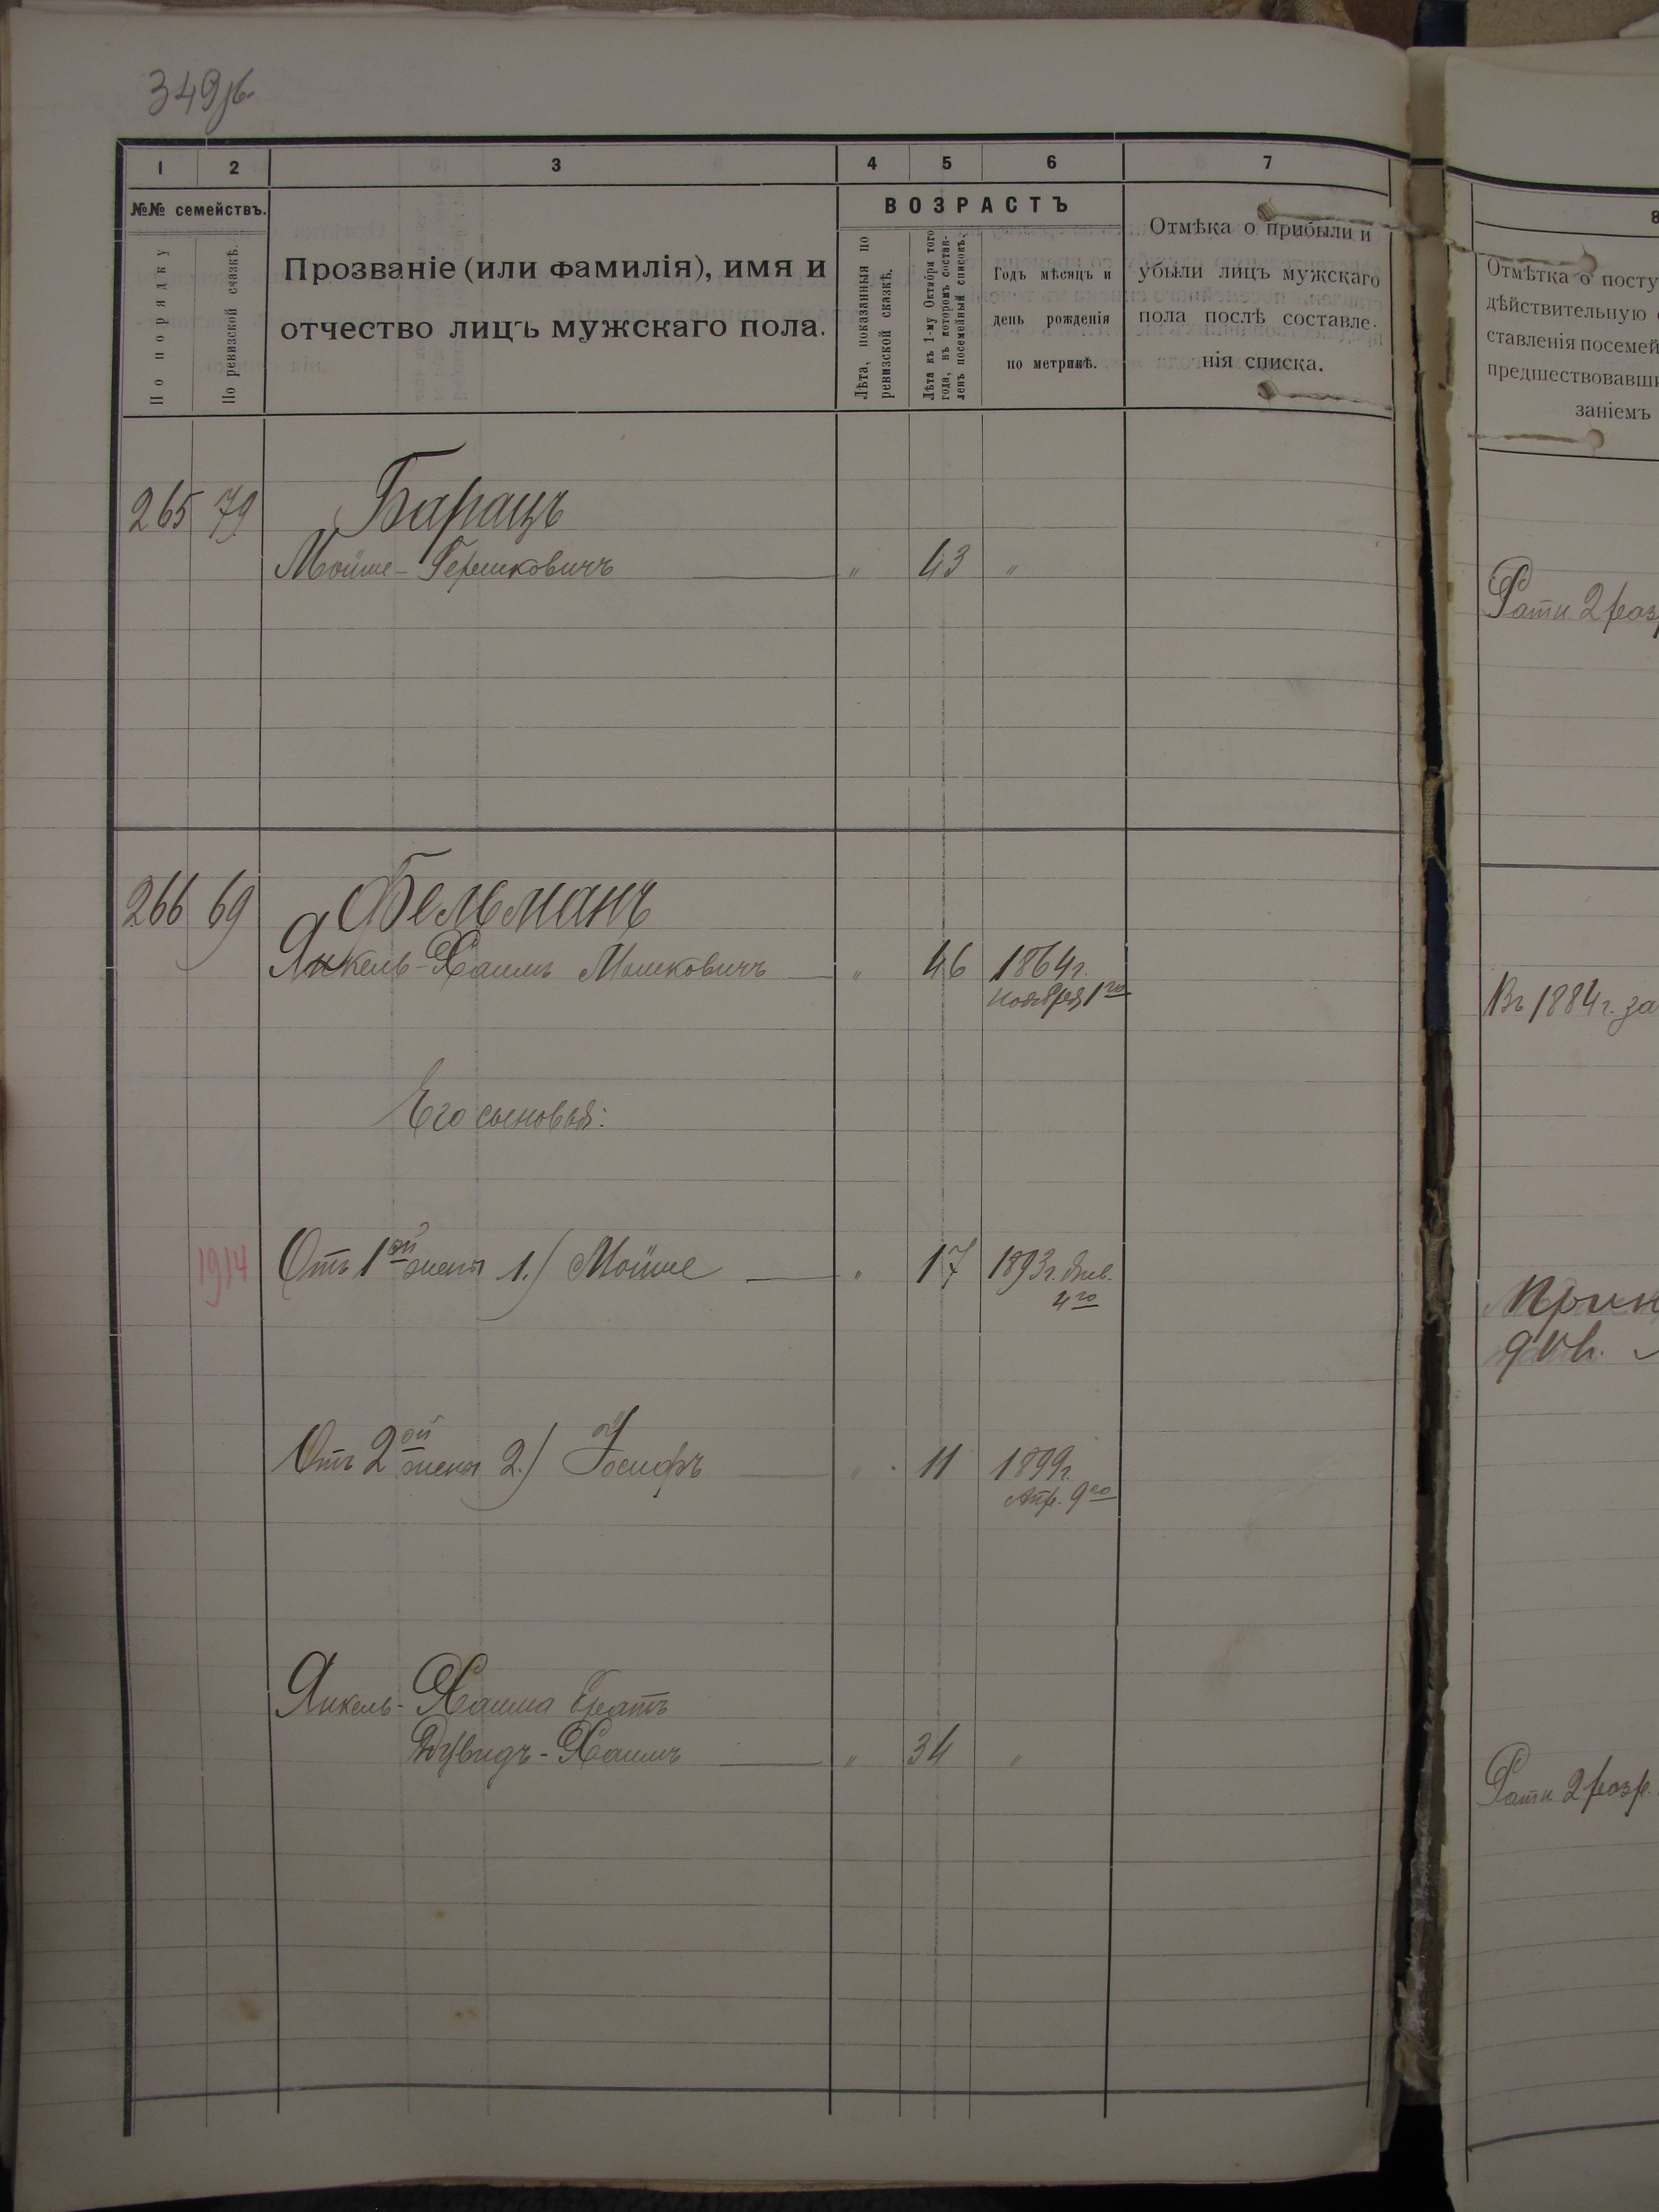 349об.
1 2 3 4 5 6 7
№№ семействъ.
По порядку
По ревизской сказкѣ.
Прозваніе (или фамилія), имя и
отчество лицъ мужскаго пола.
ВОЗРАСТЪ
Лѣта, показанныя по
ревизской сказкѣ.
Лѣта къ 1-му Октября того
года, въ которомъ состав-
ленъ посемейный списокъ.
Годъ мѣсяцъ и
день рожденія
по метрикѣ.
Отмѣка о прибыли и
убыли лицъ мужскаго
пола послѣ составле-
нія списка.
265 79 Барацъ
Мойше-Гершковичъ " 43 "
266 69 Фельманъ
Янкель-Хаимъ Мошковичъ " 46 1864г.
ноября 1го
Его сыновья:
1914 Отъ 1ой жены 1.) Мойше " 17 1893г. Янв.
4го
Отъ 2ой жены 2.) Іосифъ " 11 1899г.
Апр. 9го
Янкель-Хаима братъ
Дувидъ-Хаимъ " 34 "
8
Отмѣтка о посту
дѣйствительную
ставленія посемей
предшествовавши
заніемъ
Ратн. 2 раз
Въ 1884г. за
Прин
Ратн. 2 разр.